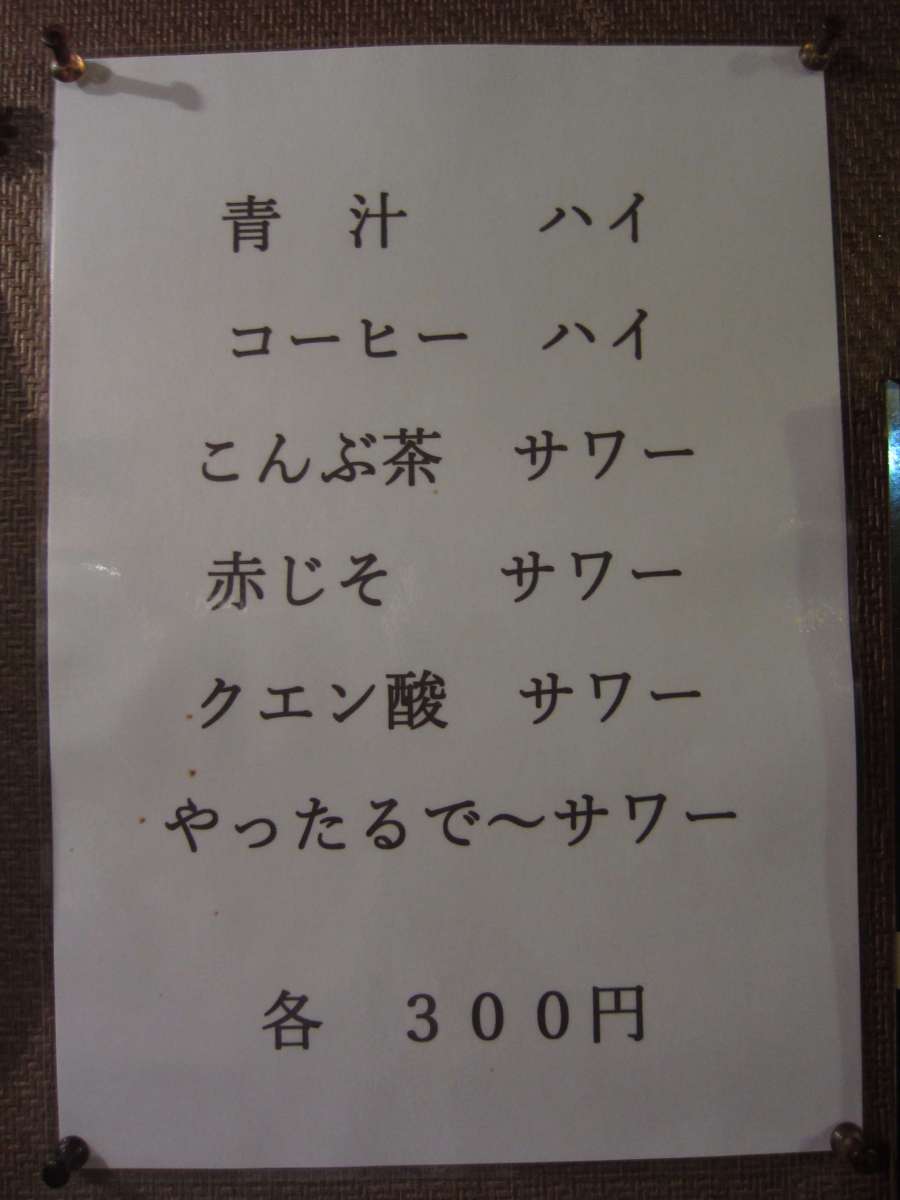 青　汁　　ハイ
コーヒー　ハイ
こんぶ茶　サワー
赤じそ　　サワー
クエン酸　サワー
やったるで～サワー
各　３００円